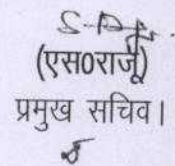 (एस0राजू)
प्रमुख सचिव।